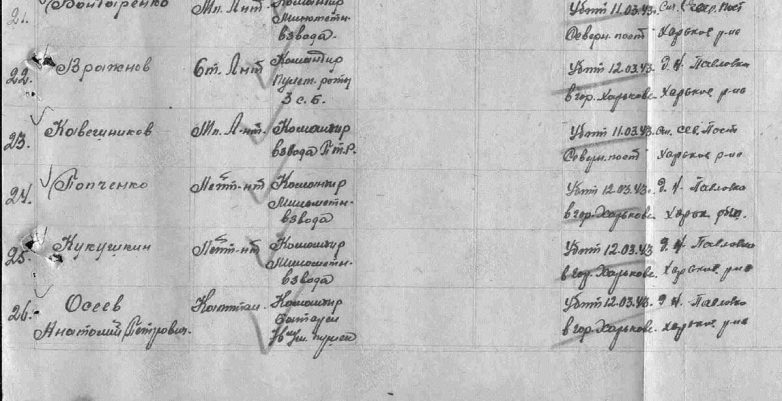 21. Бондаренко Мл. Л-нт. Командир Убит 11.03.43. Ст. Север. Пост
Минометн. Северн. пост Харьков р-на
взвода.
22. Вражнов Ст. Л-нт Командир Убит 12.03.43. Д. Н. Павловка
Пульт. роты в гор. Харькове. Харьков р-на
3 с.б.
23. Кавешников Мл. Л-нт. Командир Убит 11.03.43. Ст. Сев. Пост
взвода П.Т.Р. Северн. пост Харьков р-на
24. Попченко Лейт-нт Командир Убит 12.03.43. Д. Н. Павловка
Минометн. в гор. Харькове. Харьк. р-на.
взвода
25. Кукушкин Лейт-нт. Командир Убит 12.03.43. Д. Н. Павловка
Минометн. в гор. Харькове. Харьков р-на
взвода
26. Осеев Капитан. Командир Убит 12.03.43. Д. Н. Павловка
Анатолий Петрович. Батареи в гор. Харькове. Харьков р-на
пушек